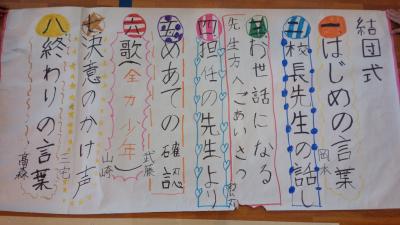 結団式
一はじめの言葉
岡本
二校長先生の話し
三お世話になる
先生方へごあいさつ
四担任の先生より
五めあての確認
武藤
六歌(全力少年)
山崎
七決意のかけ声
三宅
八終わりの言葉
髙森